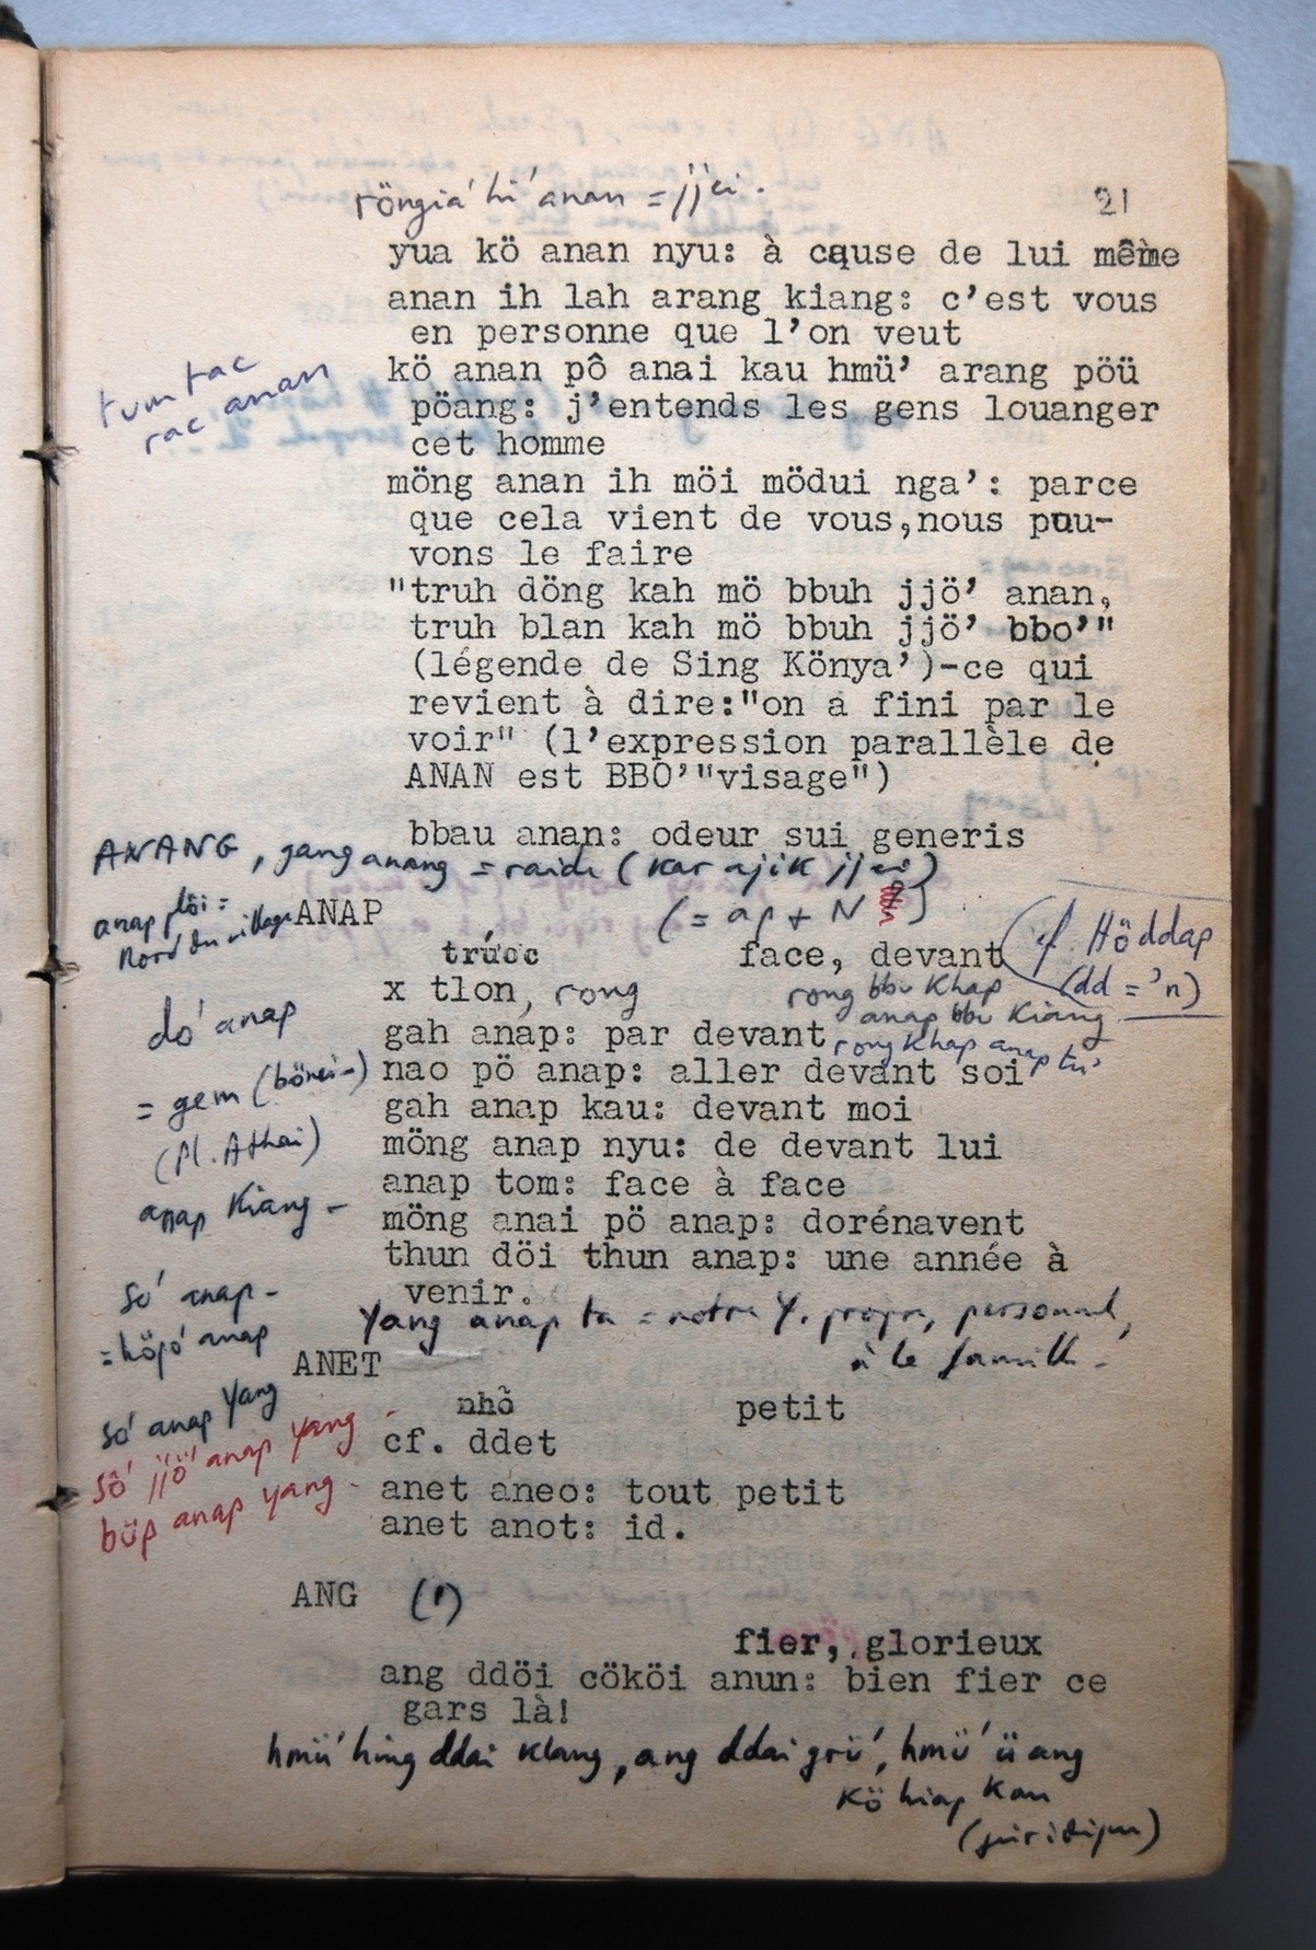 röngiă' hi' anan = jjei.
21
yua kö anan nyu: à cause de lui même
anan ih lah arang kiang: c'est vous
en personne que l'on veut
tum tac
rac anan
kö anan pô anai kau hmü' arang pöü
pöang: j'entends les gens louanger
cet homme
möng anan ih möi mödui nga': parce
que cela vient de vous,nous puu-
vons le faire
"truh döng kah mö bbuh jjö' anan,
truh blan kah mö bbuh jjö' bbo'"
(légende de Sing Könya')-ce qui
revient à dire:"on a fini par le
voir" (l'expression parallèle de
ANAN est BBO'"visage")
bbau anan: odeur sui generis
ANANG, gang anang = raide (kar ajik jjei)
anap plöi =
Nord du village
ANAP
(= ap + N
trước face, devant
cf. Höddap
(dd = 'n)
x tlon, rong
rong bbu Khap
anap bbu Kiang
do' anap
gah anap: par devant
rong Khap anap tu'
nao pö anap: aller devant soi
= gem (bönei-)
gah anap kau: devant moi
(Pl. Athai)
möng anap nyu: de devant lui
anap Kiang -
anap tom: face à face
möng anai pö anap: dorénavent
thun döi thun anap: une année à
venir.
so' anap -
= höpo' anap
Yang anap ta = notre Y. propre, personnel,
à la famille -
ANET
so' anap Yang
nhỏ petit
cf. ddet
sô' jjö' anap Yang
büp anap yang -
anet aneo: tout petit
anet anot: id.
ANG (1)
fier, glorieux
ang ddöi cököi anun: bien fier ce
gars là!
hmü' hing ddai Klang, ang ddai grü', hmü' ü ang
Kö hiap Kau